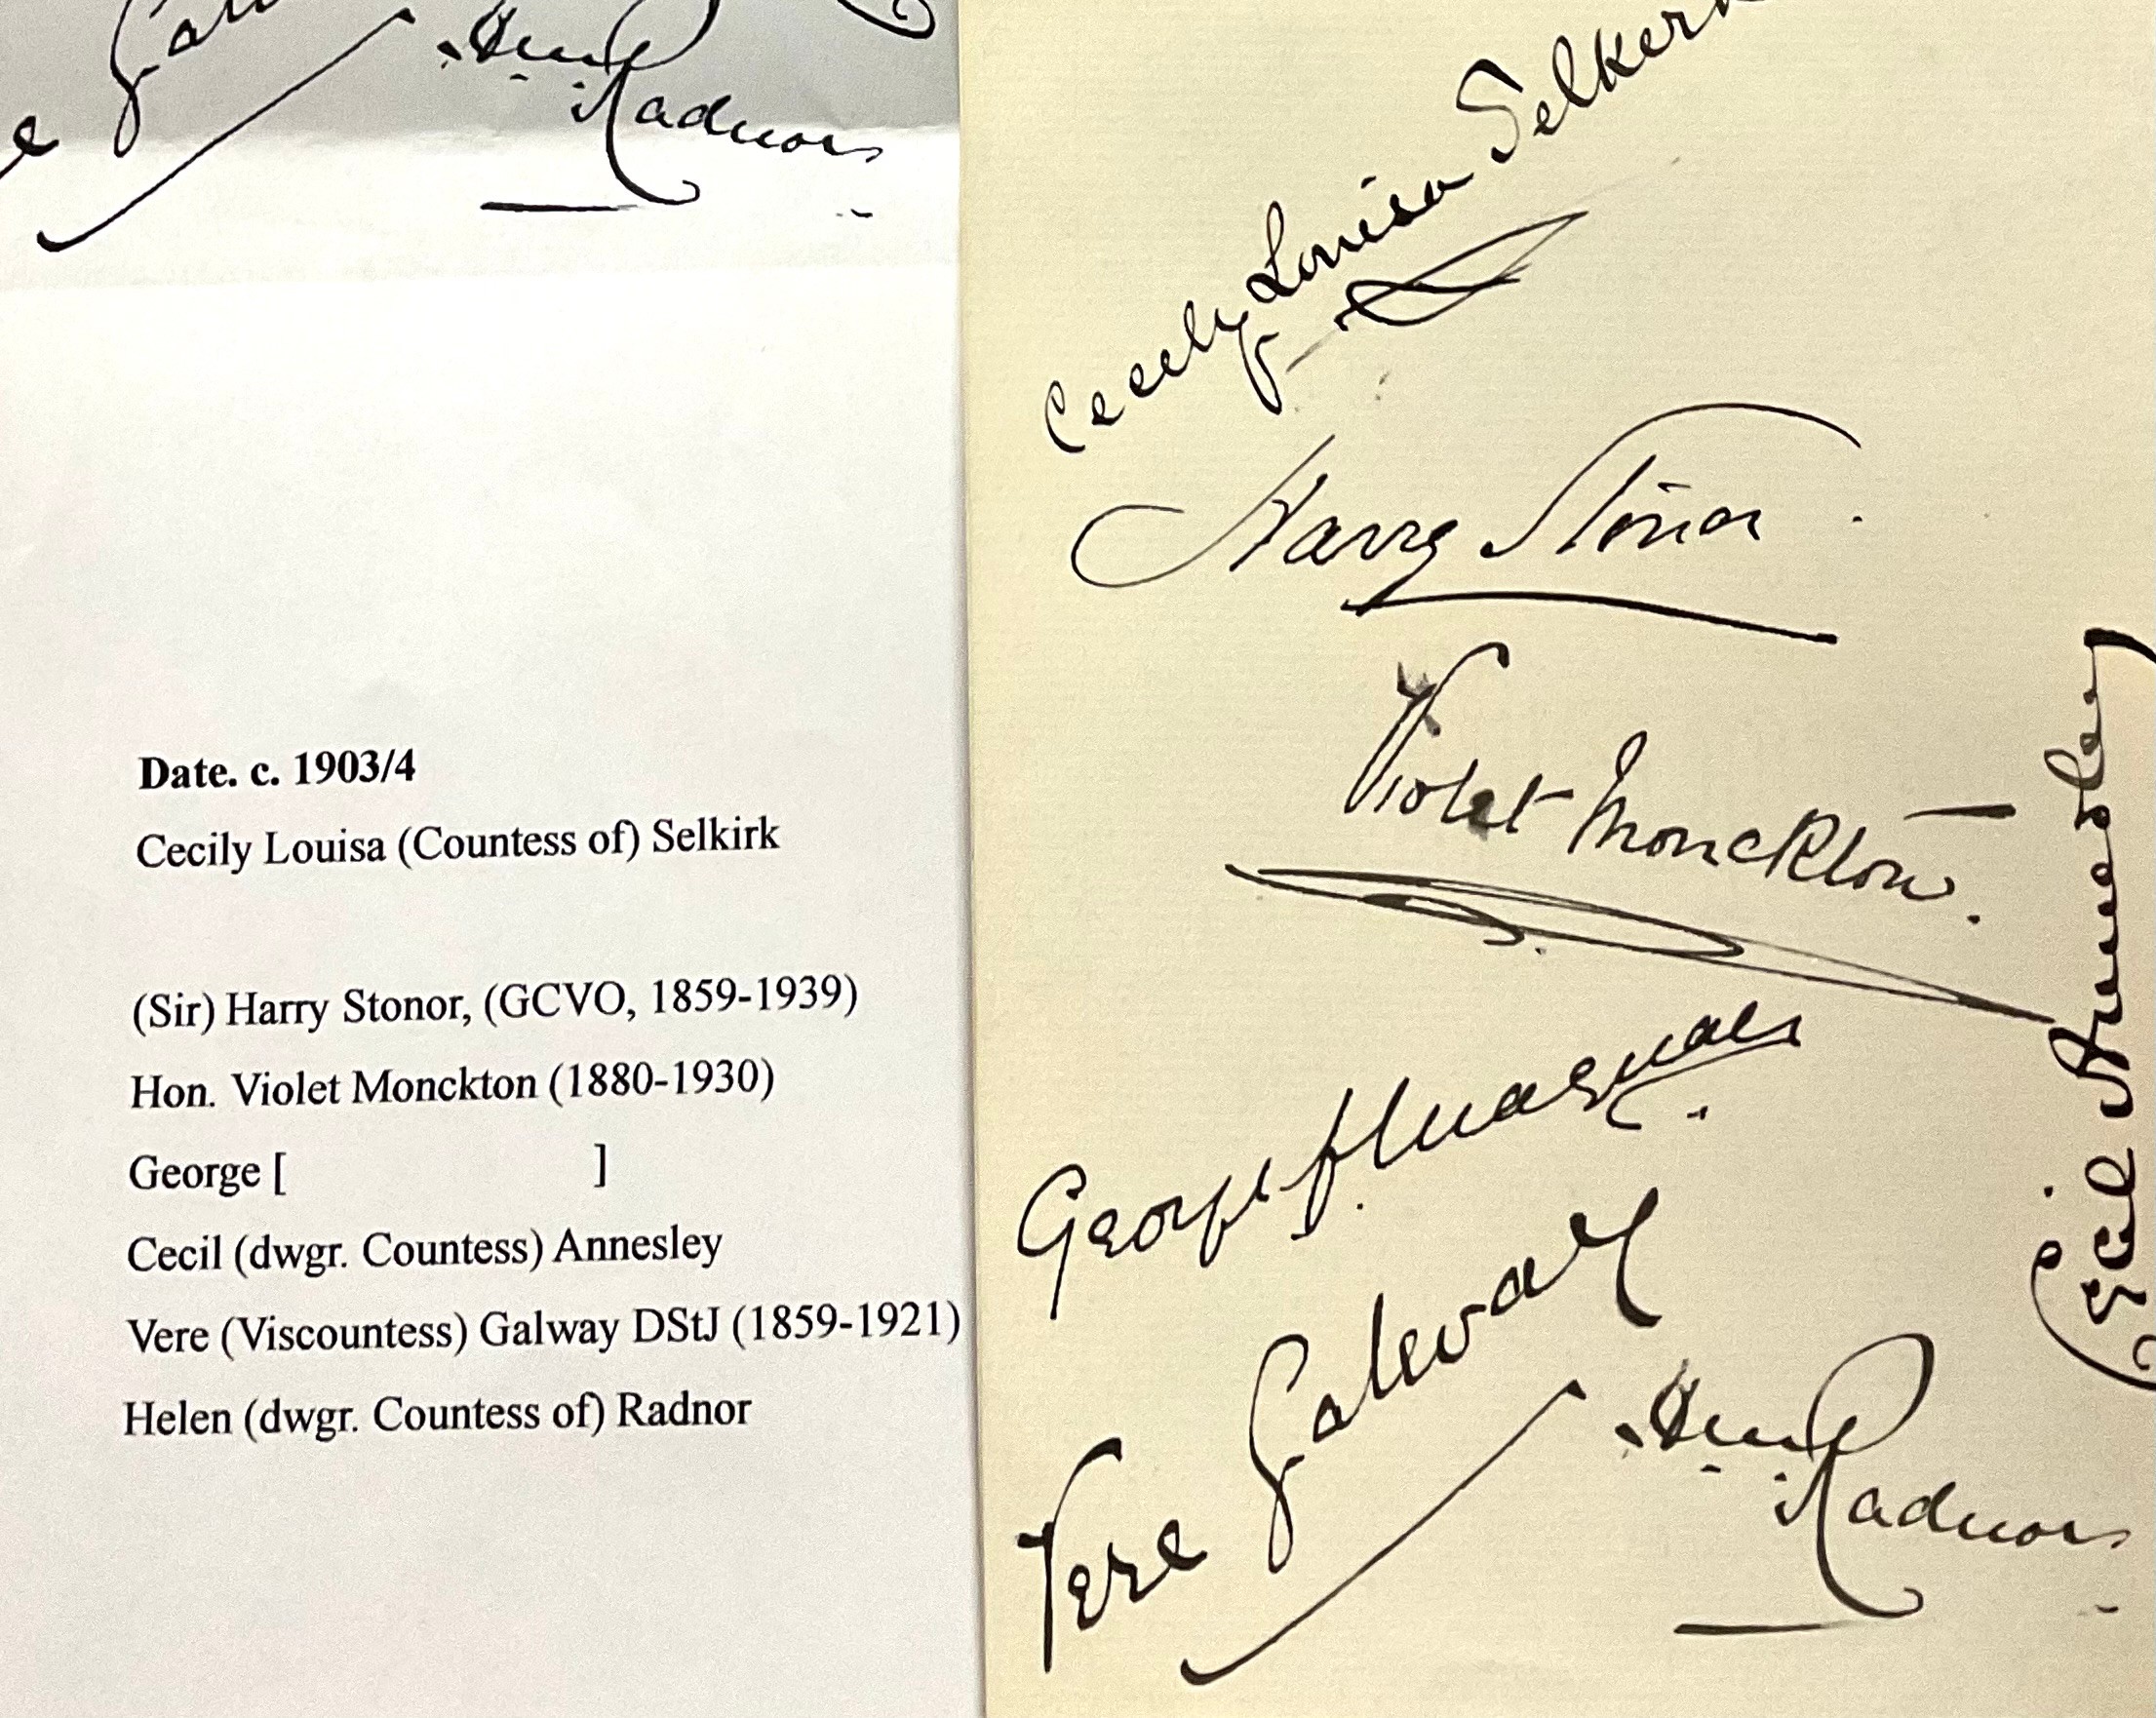 Radnor
Date. c. 1903/4
Cecily Louisa (Countess of) Selkirk
(Sir) Harry Stonor, (GCVO, 1859-1939)
Hon. Violet Monckton (1880-1930)
George [ ]
Cecil (dwgr. Countess) Annesley
Vere (Viscountess) Galway DStJ (1859-1921)
Helen (dwgr. Countess of) Radnor
Cecely Louisa Selkirk
Harry Stonor
Violet Monckton.
George
Cecil Annesley
Vere Galway
Radnor